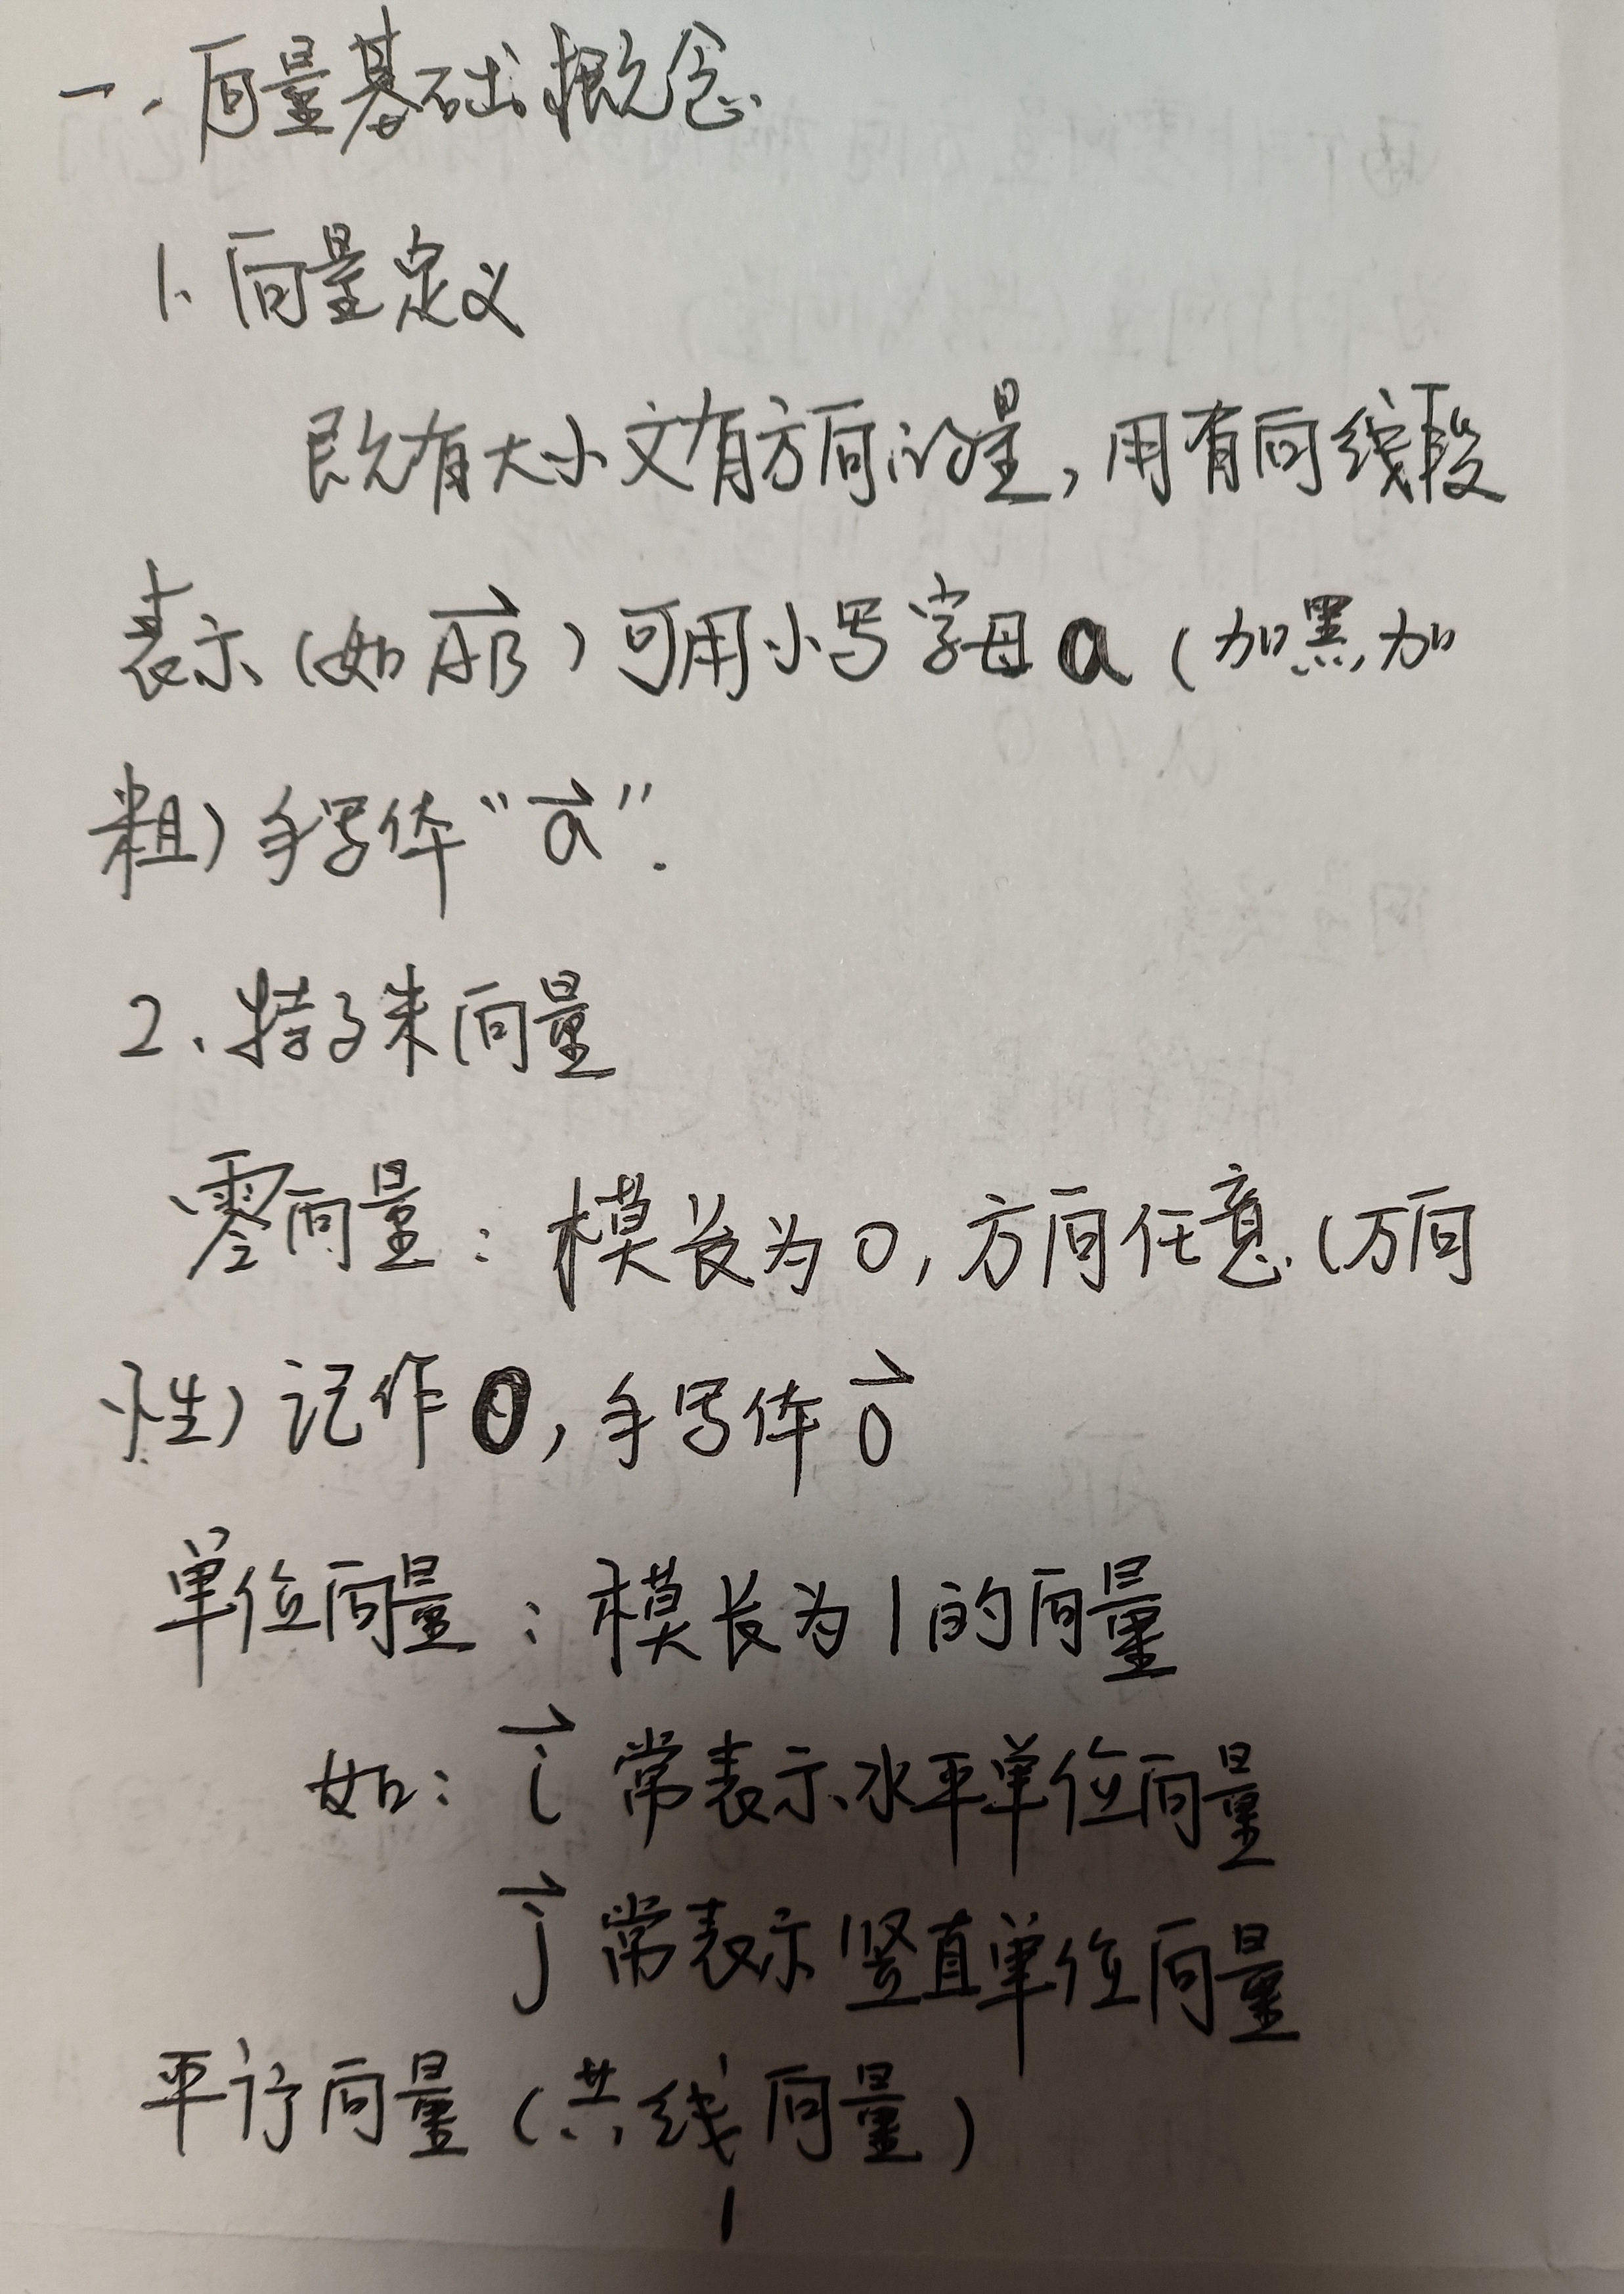 一、向量基础概念
1、向量定义
既有大小又有方向的量，用有向线段
表示（如 $\overrightarrow{AB}$）可用小写字母 a（加黑加
粗）手写体“$\vec{a}$”.
2、特殊向量
零向量：模长为0，方向任意（万向
性）记作 0，手写体 $\vec{0}$
单位向量：模长为1的向量
如：$\vec{i}$ 常表示水平单位向量
$\vec{j}$ 常表示竖直单位向量
平行向量（共线向量）